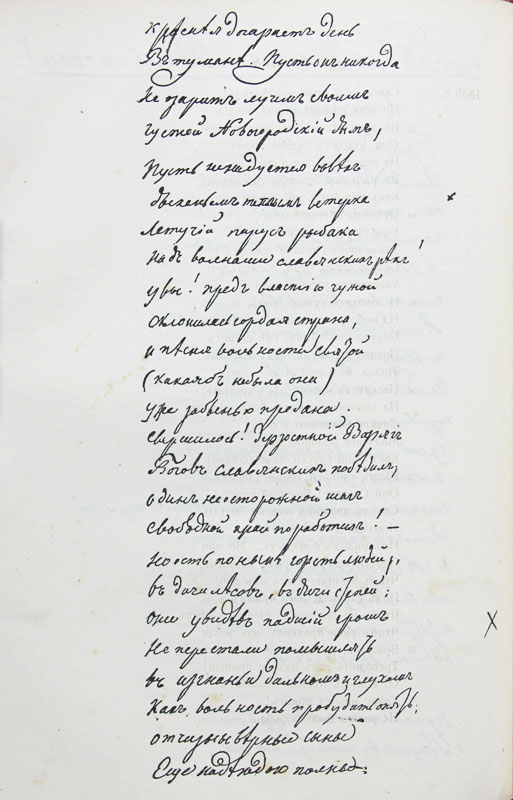 Краснѣя догараетъ день
Въ туманѣ. Пусть онъ никогда
Не озаритъ лучемъ своимъ
густой Новогородскій дымъ,
Пусть не надуется вовѣкъ
дыханьемъ теплымъ вѣтерка
Летучій парусъ рыбака
надъ волнами славянскихъ рѣкъ!
увы! предъ властію чужой
склонилась гордая страна,
и пѣсня вольности святой
(какая бъ ни была она)
уже забвенью предана.
свершилось! дерзостной Варягъ
Боговъ славянскихъ побѣдилъ;
одинъ неосторожной шагъ
свободной край поработилъ! —
но есть понынѣ горсть людей;
въ дичи лѣсовъ, въ дичи степей;
они увидѣвъ падшій громъ
не перестали помышлять
въ изгнаньи дальномъ и глухомъ
Какъ вольность пробудить опять;
отчизны вѣрные сыны
Еще надеждою полны: